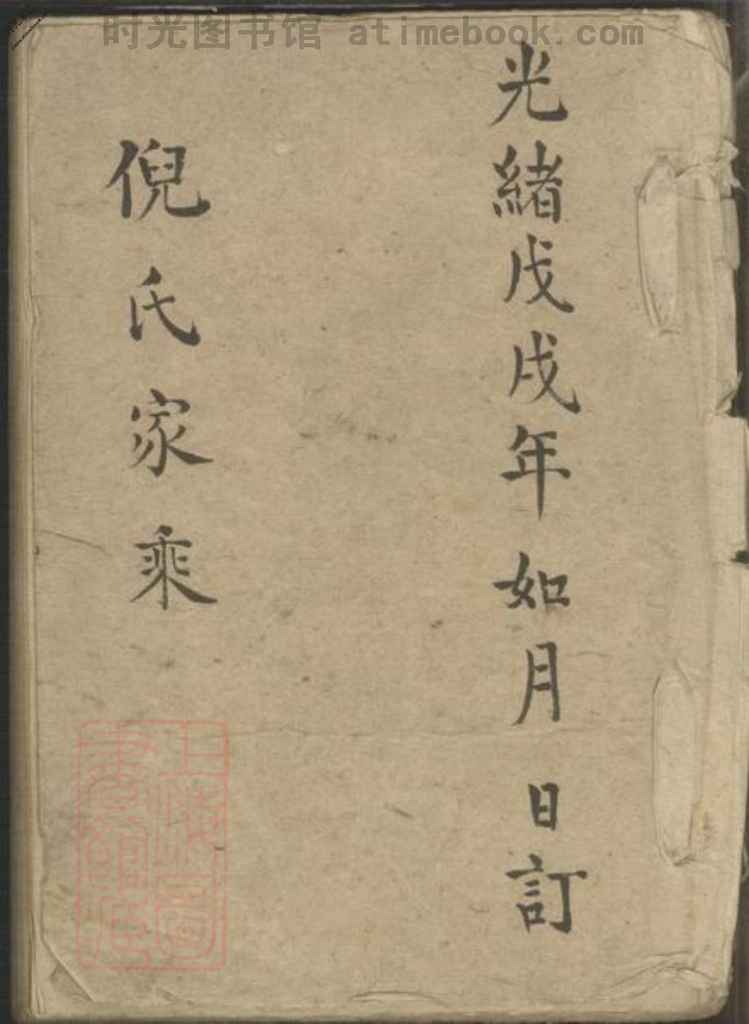 时光图书馆 atimebook.com
光緒戊戌年如月 日訂
倪氏家乘